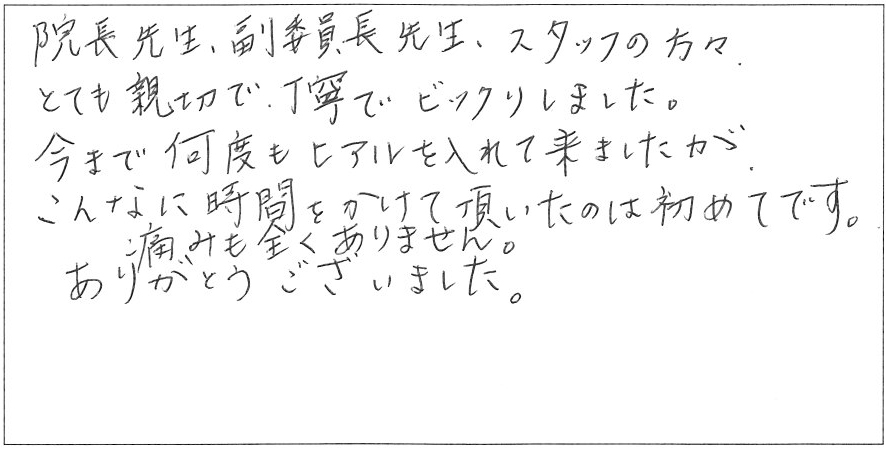 院長先生、副委員長先生、スタッフの方々、
とても親切で、丁寧でビックリしました。
今まで何度もヒアルを入れて来ましたが、
こんなに時間をかけて頂いたのは初めてです。
痛みも全くありません。
ありがとうございました。